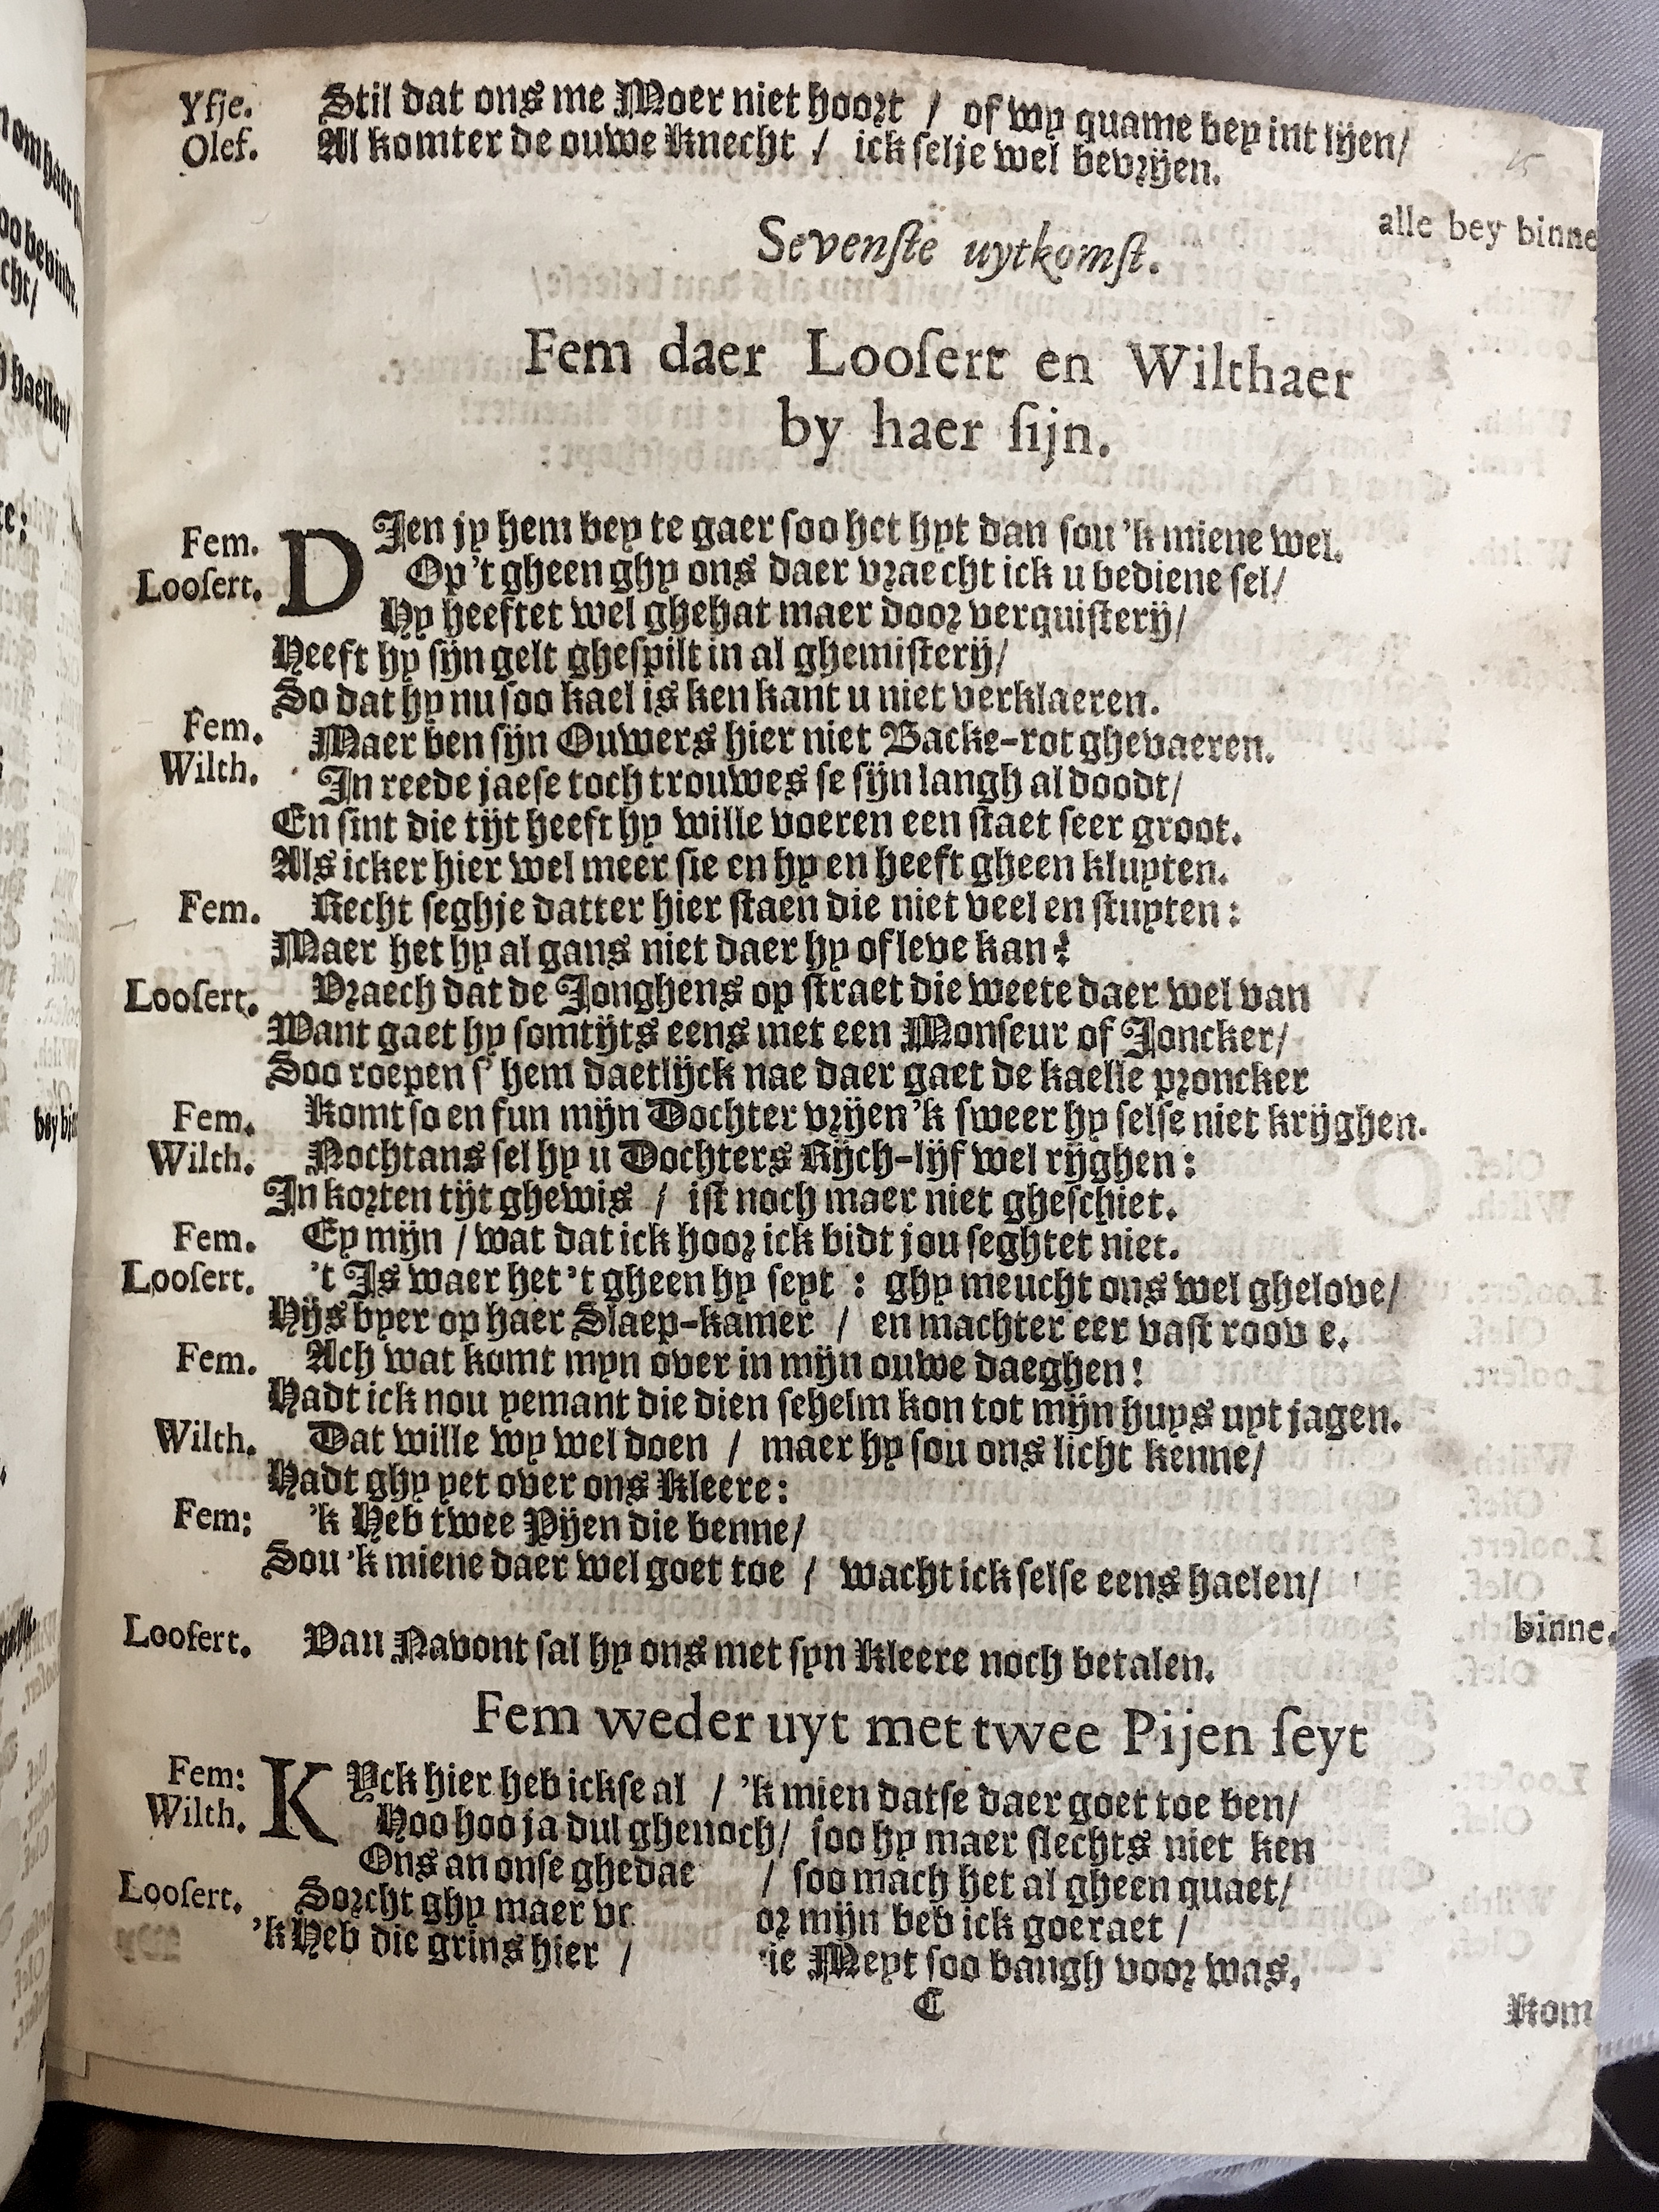 Yfje. Stil dat ons me Moer niet hoort / of wy quame bey int lijen/
Olef. Al komter de ouwe Knecht / ick selje wel bevrijen.
alle bey binne
Sevenſte uytkomſt.
Fem daer Looſert en Wilthaer
by haer ſijn.
Fem. DJen jy hem bey te gaer ſoo het hyt dan ſou 'k miene wel.
Looſert. Op 't gheen ghy ons daer vraecht ick u bediene ſel/
Hy heeftet wel ghehat maer door verquiſterij/
Heeft hy ſijn gelt gheſpilt in al ghemiſterij/
So dat hy nu ſoo kael is ken kant u niet verklaeren.
Fem. Maer ben ſijn Ouwers hier niet Backe-rot ghevaeren.
Wilth. In reede jaeſe toch trouwes ſe ſijn langh al doodt/
En ſint die tijt heeft hy wille voeren een ſtaet ſeer groot.
Als icker hier wel meer ſie en hy en heeft gheen kluyten.
Fem. Recht ſeghje datter hier ſtaen die niet veel en ſtuyten:
Maer het hy al gans niet daer hy of leve kan?
Looſert. Vraech dat de Jonghens op ſtraet die weete daer wel van
Want gaet hy ſomtijts eens met een Monſeur of Joncker/
Soo roepen ſ' hem daetlijck nae daer gaet de kaelle proncker
Fem. Komt ſo en fun mijn Dochter vrijen 'k ſweer hy ſelſe niet krijghen.
Wilth. Nochtans ſel hy u Dochters Rijch-lijf wel rijghen:
In korten tijt ghewis / iſt noch maer niet gheſchiet.
Fem. Ey mijn / wat dat ick hoor ick bidt jou ſeghtet niet.
Looſert. 't Is waer het 't gheen hy ſeyt : ghy meucht ons wel ghelove/
Hijs byer op haer Slaep-kamer / en machter eer vaſt roov e.
Fem. Ach wat komt myn over in mijn ouwe daeghen!
Hadt ick nou yemant die dien ſehelm kon tot mijn huys uyt jagen.
Wilth. Dat wille wy wel doen / maer hy ſou ons licht kenne/
Hadt ghy yet over ons Kleere:
Fem: 'k Heb twee Pijen die benne/
Sou 'k miene daer wel goet toe / wacht ick ſelſe eens haelen/
binne.
Looſert. Van Navont ſal hy ons met ſyn Kleere noch betalen.
Fem weder uyt met twee Pijen ſeyt
Fem: KYck hier heb ickſe al / 'k mien datſe daer goet toe ben/
Wilth. Hoo hoo ja dul ghenoch/ ſoo hy maer ſlechts niet ken
Ons an onſe ghedae / ſoo mach het al gheen quaet/
Looſert. Sorcht ghy maer or mijn beb ick goeraet /
'k Heb die grins hier / Meyt ſoo bangh voor was,
C
Kom